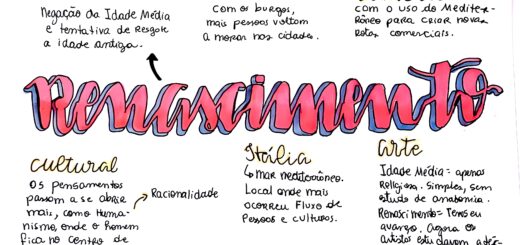 negação da Idade Média
e tentativa de Resgate
a idade antiga.
Com os burgos,
mais pessoas voltam
a morar nas cidades.
com o uso do Mediter-
Râneo para criar novas
Rotas comerciais.
Renascimento
cultural
os pensamentos
passam a se abrir
mais, como Huma-
nismo, onde o homem
fica no centro de
Racionalidade
Itália
↳ mar mediterrâneo.
Local onde mais
ocorreu Fluxo de
Pessoas e culturas.
arte
Idade Média = apenas
Religiosa. Simples, sem
estudo de anatomia.
Renascimento = Teve seu
avanço. Agora os
Artistas estudavam